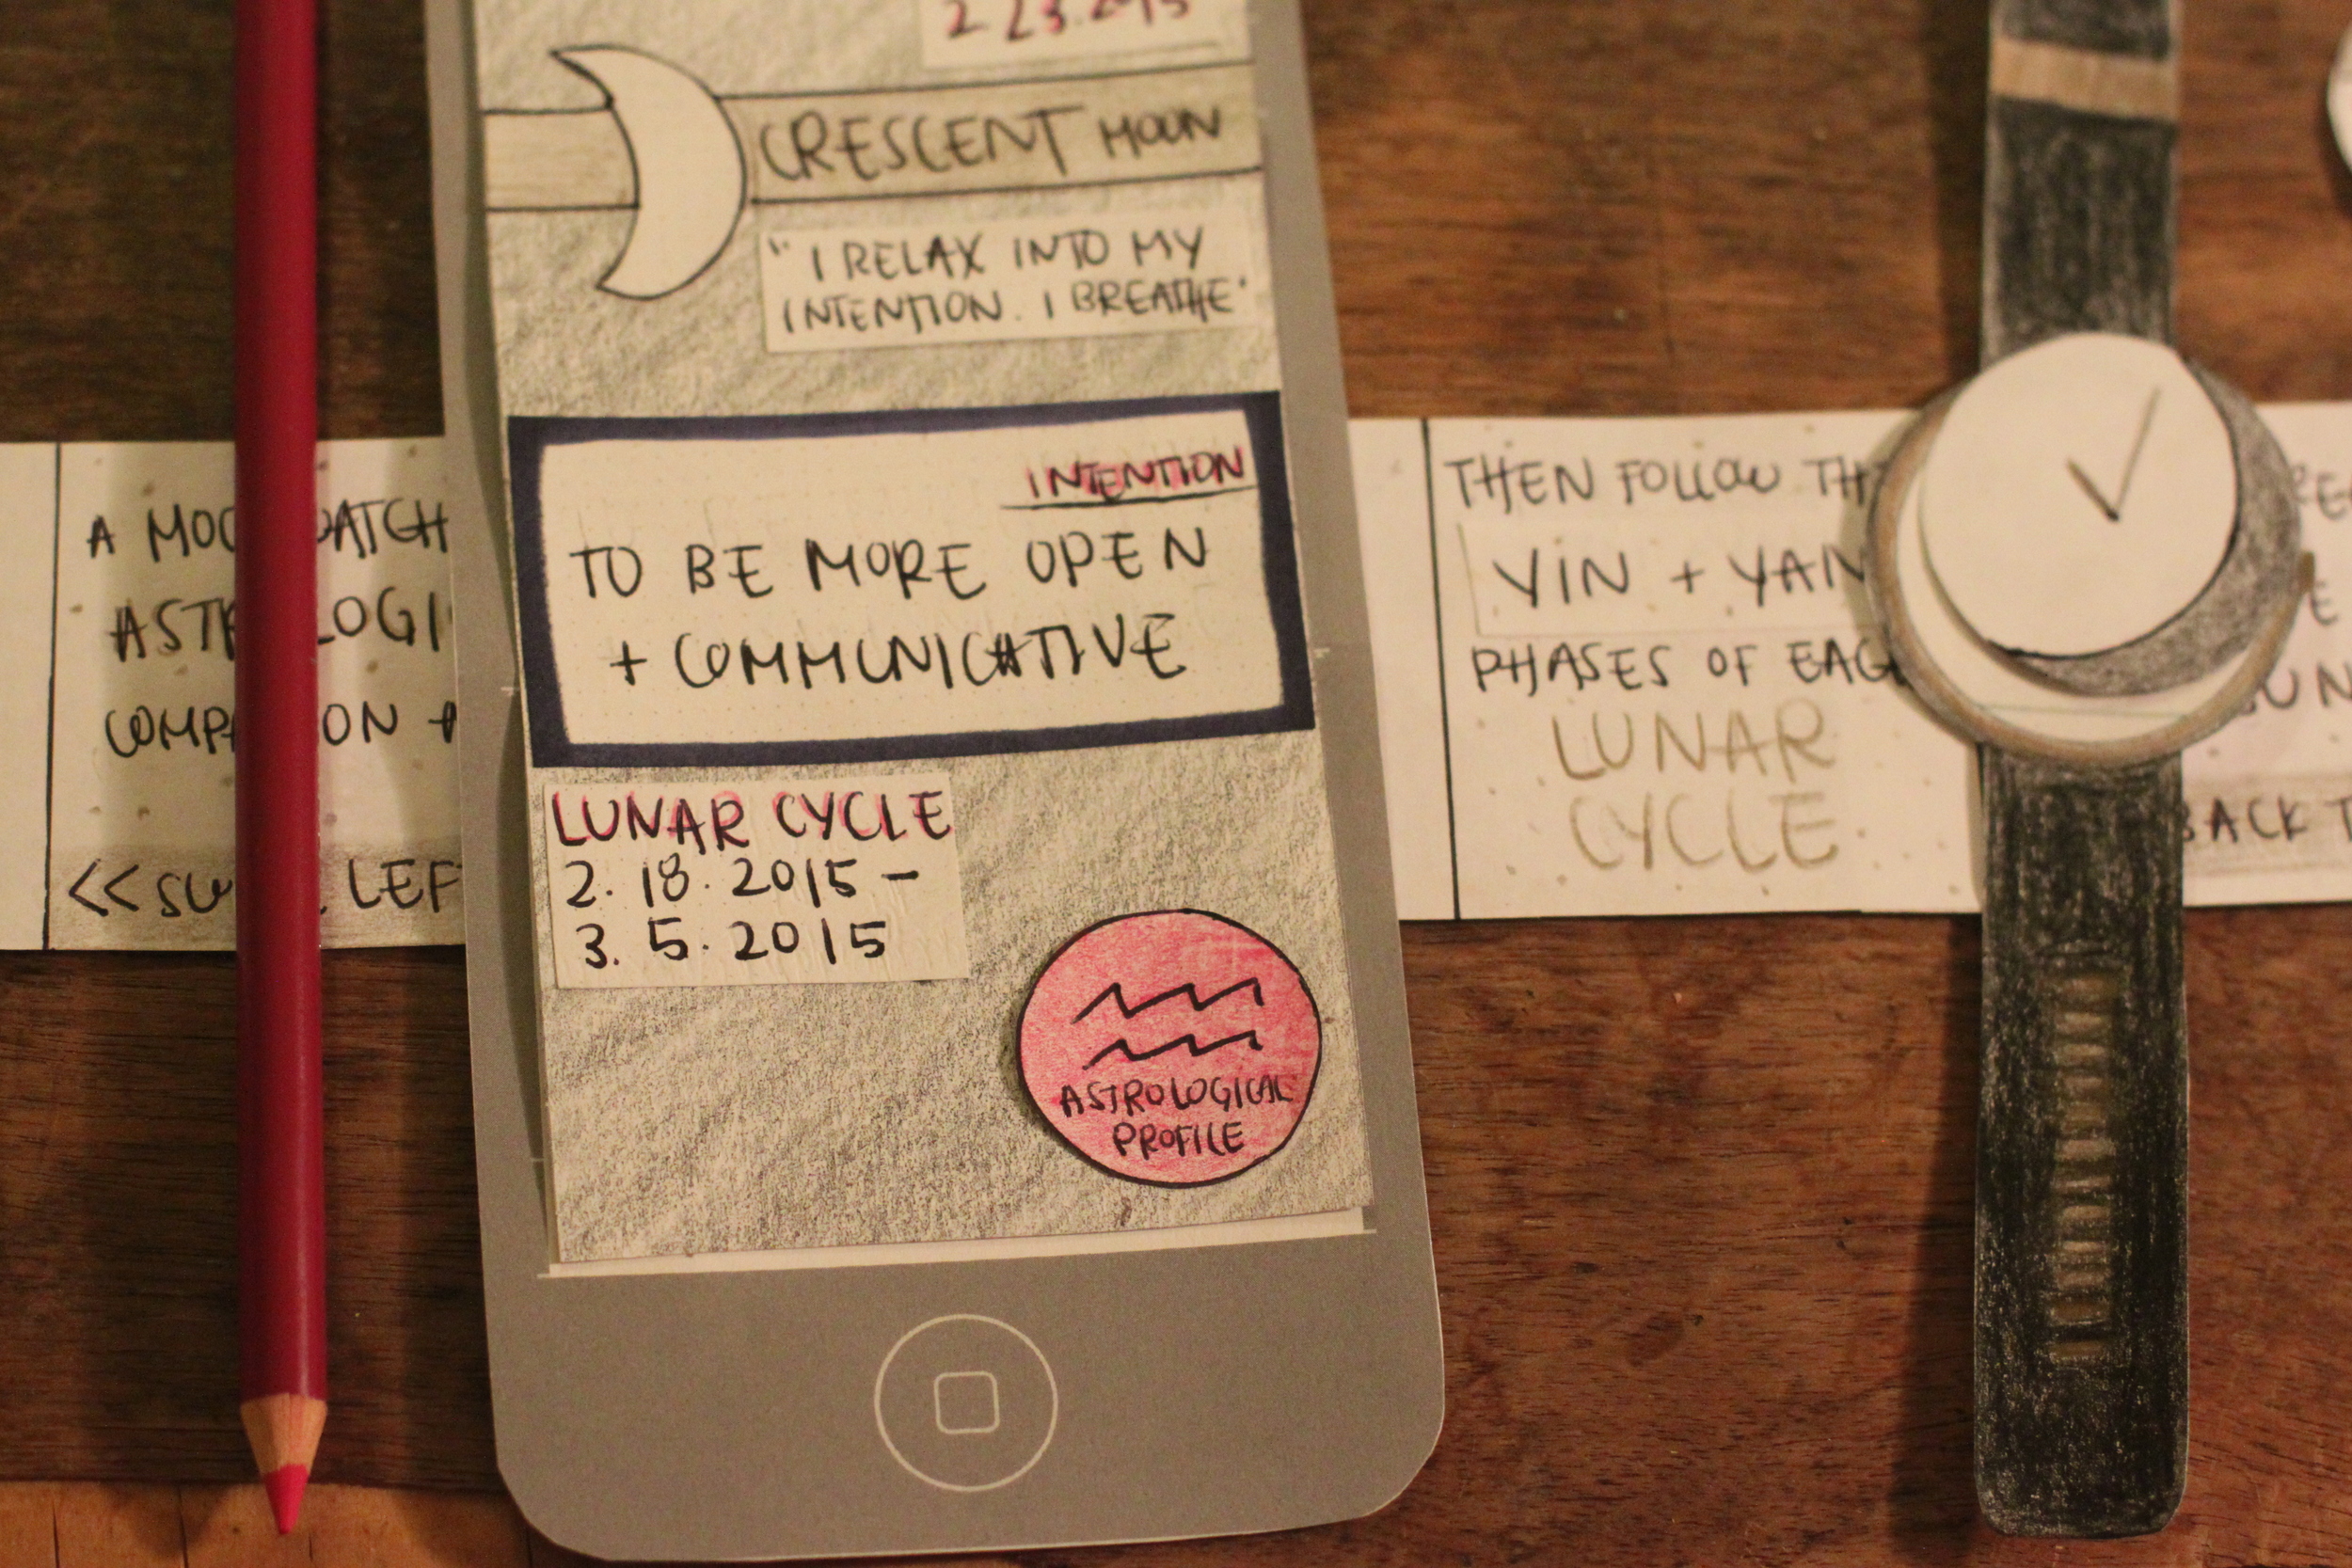 2 23.2015
CRESCENT MOON
"I RELAX INTO MY
INTENTION. I BREATHE"
INTENTION
TO BE MORE OPEN
+ COMMUNICATIVE
LUNAR CYCLE
2. 18. 2015 -
3. 5. 2015
ASTROLOGICAL
PROFILE
A
<< LEF
THEN FOLLOW
YIN + YAN
PHASES OF EAC
LUNAR
CYCLE
BACK T